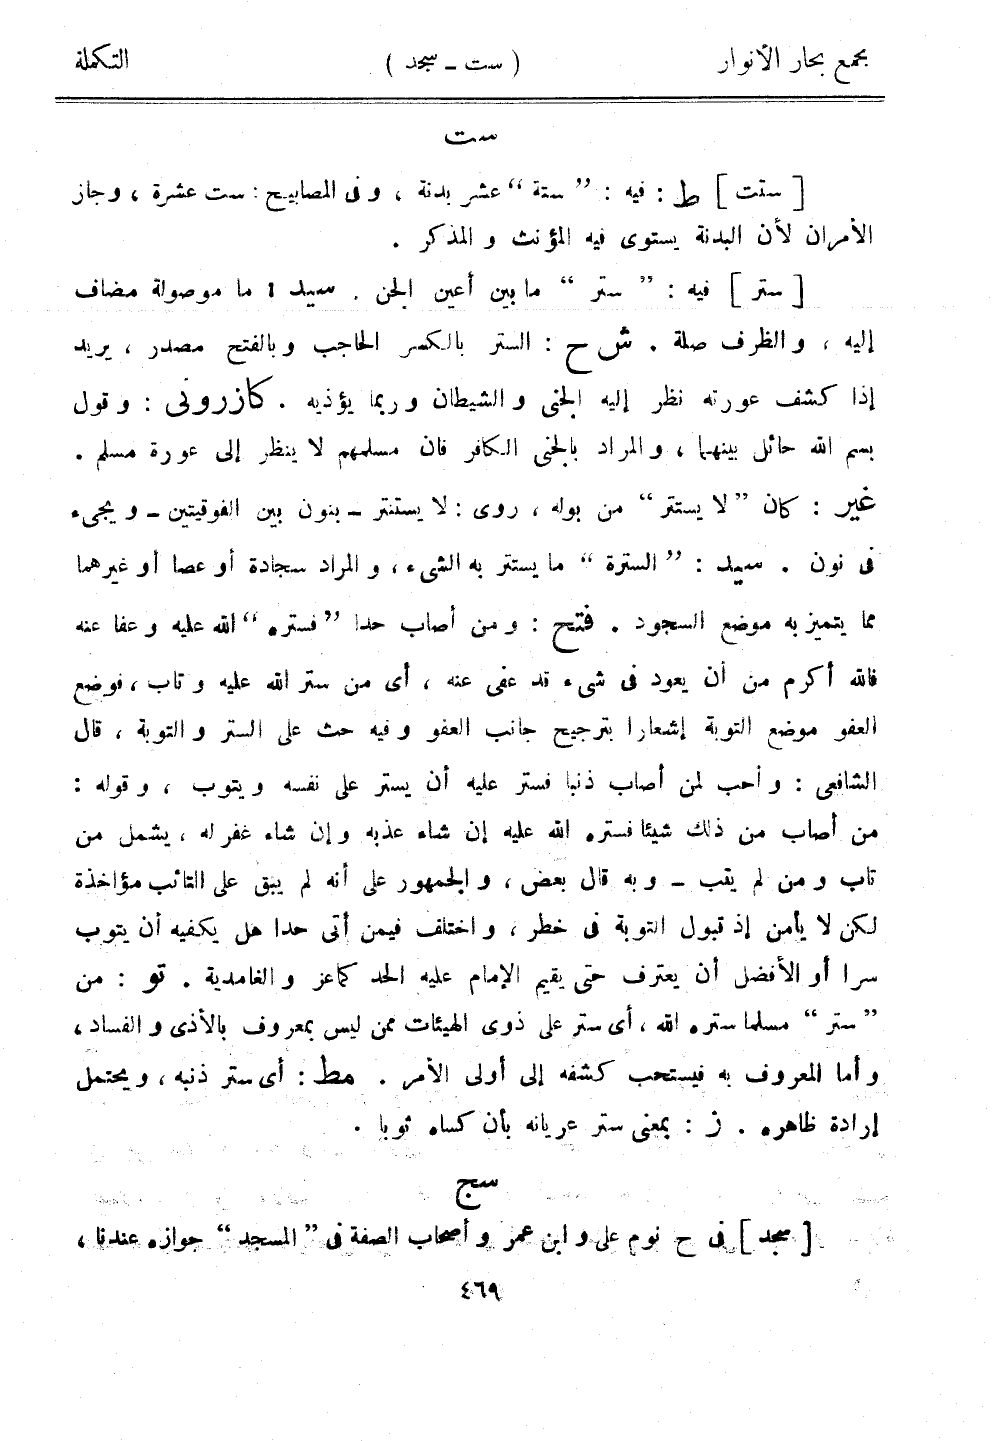 مجمع بحار الأنوار ( ست ـ سجد ) التكملة
ست
[ ستت ] ط : فيه : ”ستة“ عشر بدنة ، و فى المصابيح : ست عشرة ، و جاز
الأمران لأن البدنة يستوى فيه المؤنث و المذكر .
[ ستر ] فيه : ”ستر“ ما بين أعين الجن . سيد : ما موصولة مضاف
إليه ، و الظرف صلة . ش ح : الستر بالكسر الحاجب و بالفتح مصدر ، يريد
إذا كشف عورته نظر إليه الجنى و الشيطان و ربما يؤذيه . كازرونى : و قول
بسم الله حائل بينهما ، و المراد بالجنى الكافر فان مسلمهم لا ينظر إلى عورة مسلم .
غير : كان ”لا يستتر“ من بوله ، روى : لا يستنتر ـ بنون بين الفوقيتين ـ و يجىء
فى نون . سيد : ”السترة“ ما يستتر به الشىء ، و المراد سجادة أو عصا أو غيرهما
مما يتميز به موضع السجود . فتح : و من أصاب حدا ”فستره“ الله عليه و عفا عنه
فالله أكرم من أن يعود فى شىء قد عفى عنه ، أى من ستر الله عليه و تاب ، فوضع
العفو موضع التوبة إشعارا بترجيح جانب العفو و فيه حث على الستر و التوبة ، قال
الشافعى : و أحب لمن أصاب ذنبا فستر عليه أن يستر على نفسه و يتوب ، و قوله :
من أصاب من ذلك شيئا فستره الله عليه إن شاء عذبه و إن شاء غفر له ، يشمل من
تاب و من لم يتب ـ و به قال بعض ، و الجمهور على أنه لم يبق على التائب مؤاخذة
لكن لا يأمن إذ قبول التوبة فى خطر ، و اختلف فيمن أتى حدا هل يكفيه أن يتوب
سرا أو الأفضل أن يعترف حتى يقيم الإمام عليه الحد كماعز و الغامدية . تو : من
”ستر“ مسلما ستره الله ، أى ستر على ذوى الهيئات ممن ليس بمعروف بالأذى و الفساد ،
و أما المعروف به فيستحب كشفه إلى أولى الأمر . مط : أى ستر ذنبه ، و يحتمل
إرادة ظاهره . ز : بمعنى ستر عريانه بأن كساه ثوبا .
سج
[ سجد ] فى ح نوم على و ابن عمر و أصحاب الصفة فى ”المسجد“ جوازه عندنا ،
٤٦٩